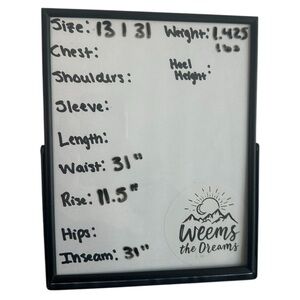 Size: 13 | 31 Weight: 1.425 lbs
Chest:
Heel Height:
Shoulders:
Sleeve:
Length:
Waist: 31"
Rise: 11.5"
Hips:
Inseam: 31"
Weems
the Dreams